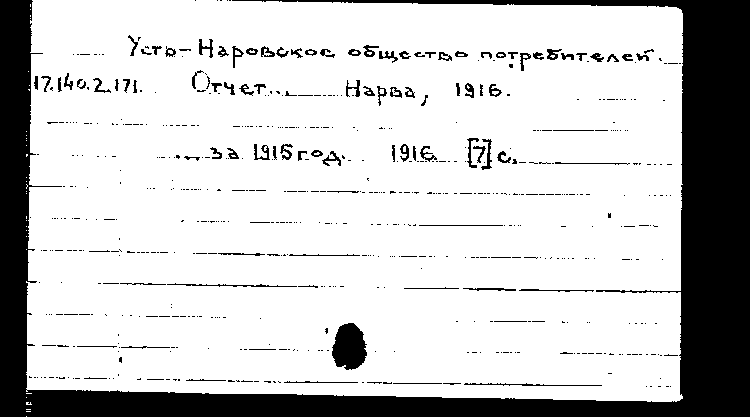 Усть-Наровское общество потребителей.
17.140.2.171. Отчет... Нарва, 1916.
... за 1915 год. 1916. [7] с.